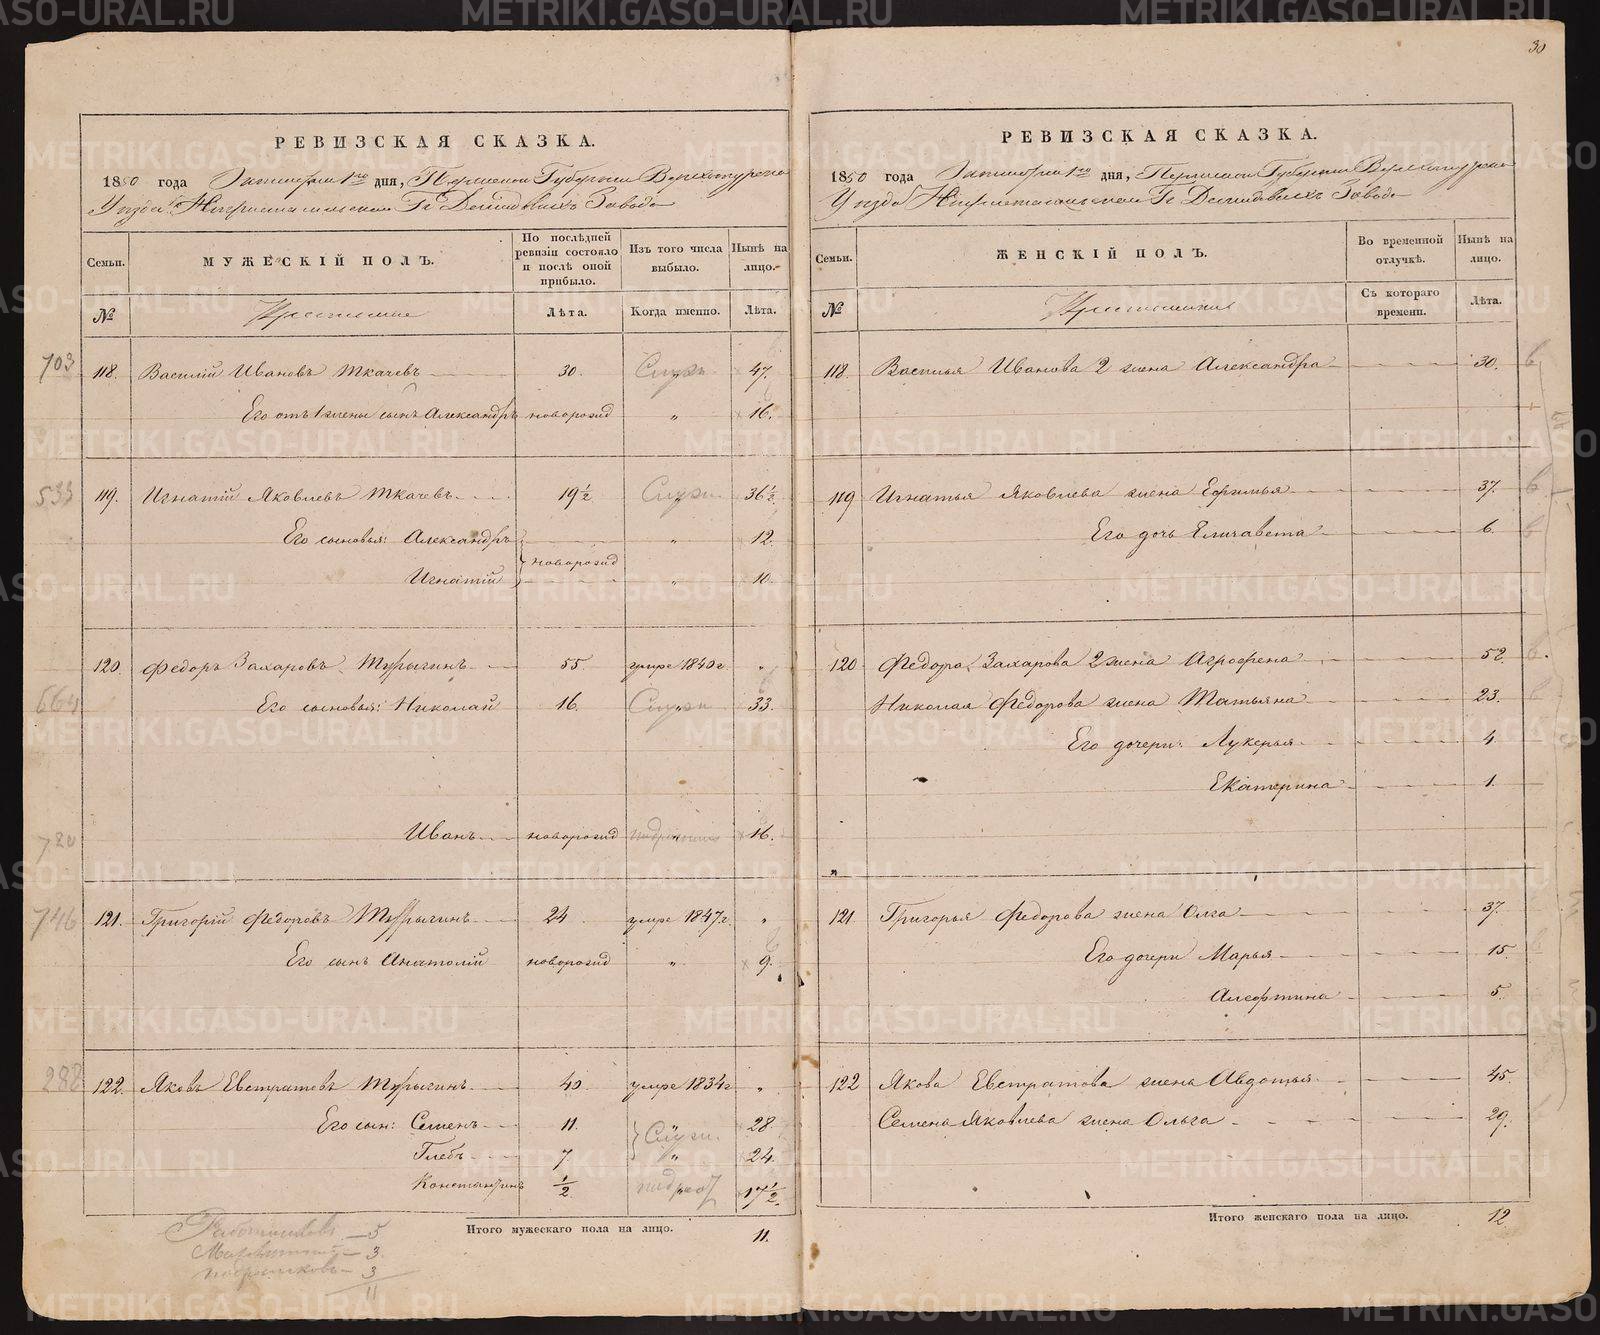 30
РЕВИЗСКАЯ СКАЗКА.
1850 года Октября 1го дня, Пермской Губернии Верхотурскаго
Уезда Нижнетагильскаго Гг Демидовыхъ Завода
Семьи.
МУЖЕСКІЙ ПОЛЪ.
По послѣдней ревизіи состояло и послѣ оной прибыло.
Изъ того числа выбыло.
Нынѣ на лицо.
№
Лѣта.
Когда именно.
Лѣта.
703 118. Василій Ивановъ Ткачевъ 30. Служ. 47.
Его отъ 1 жены сынъ Александръ новорожд „ 16.
533 119. Игнатій Яковлевъ Ткачевъ 19½ Служ. 36½.
Его сыновья: Александръ „ 12.
новорожд
Игнатій „ 10.
120. Федоръ Захаровъ Турыгинъ 55. умре 1840 г. „
664 Его сыновья: Николай 16. Служ. 33.
780 Иванъ новорожд „ 16.
746 121. Григорій Федоровъ Турыгинъ 24 умре 1847 г. „
Его сынъ Анатолій новорожд „ 9.
288 122. Яковъ Евстратовъ Турыгинъ 40. умре 1834 г „
Его сын: Семенъ 11. Служ. 28.
Глебъ 7. „ 24.
Константинъ ½ подрос 17½.
Итого мужескаго пола на лицо. 11.
Работниковъ — 5
— 3.
подростковъ — 3
11
РЕВИЗСКАЯ СКАЗКА.
1850 года Октября 1го дня, Пермской Губернии Верхотурскаго
Уезда Нижнетагильскаго Гг Демидовыхъ Завода
Семьи.
ЖЕНСКІЙ ПОЛЪ.
Во временной отлучкѣ.
Нынѣ на лицо.
№
Съ котораго времени.
Лѣта.
118. Василья Иванова 2 жена Александра 30.
119 Игнатья Яковлева жена Ефимья 37.
Его дочь Елизавета 6.
120 Федора Захарова 2 жена Агрофена 52.
Николая Федорова жена Татьяна 23.
Его дочери: Лукерья 4.
Екатерина 1.
121 Григорья Федорова жена Олга 37.
Его дочери Марья 15.
Алефтина 5.
122 Якова Евстратова жена Авдотья 45.
Семена Яковлева жена Ольга 29.
Итого женскаго пола на лицо. 12.
METRIKI.GASO-URAL.RU